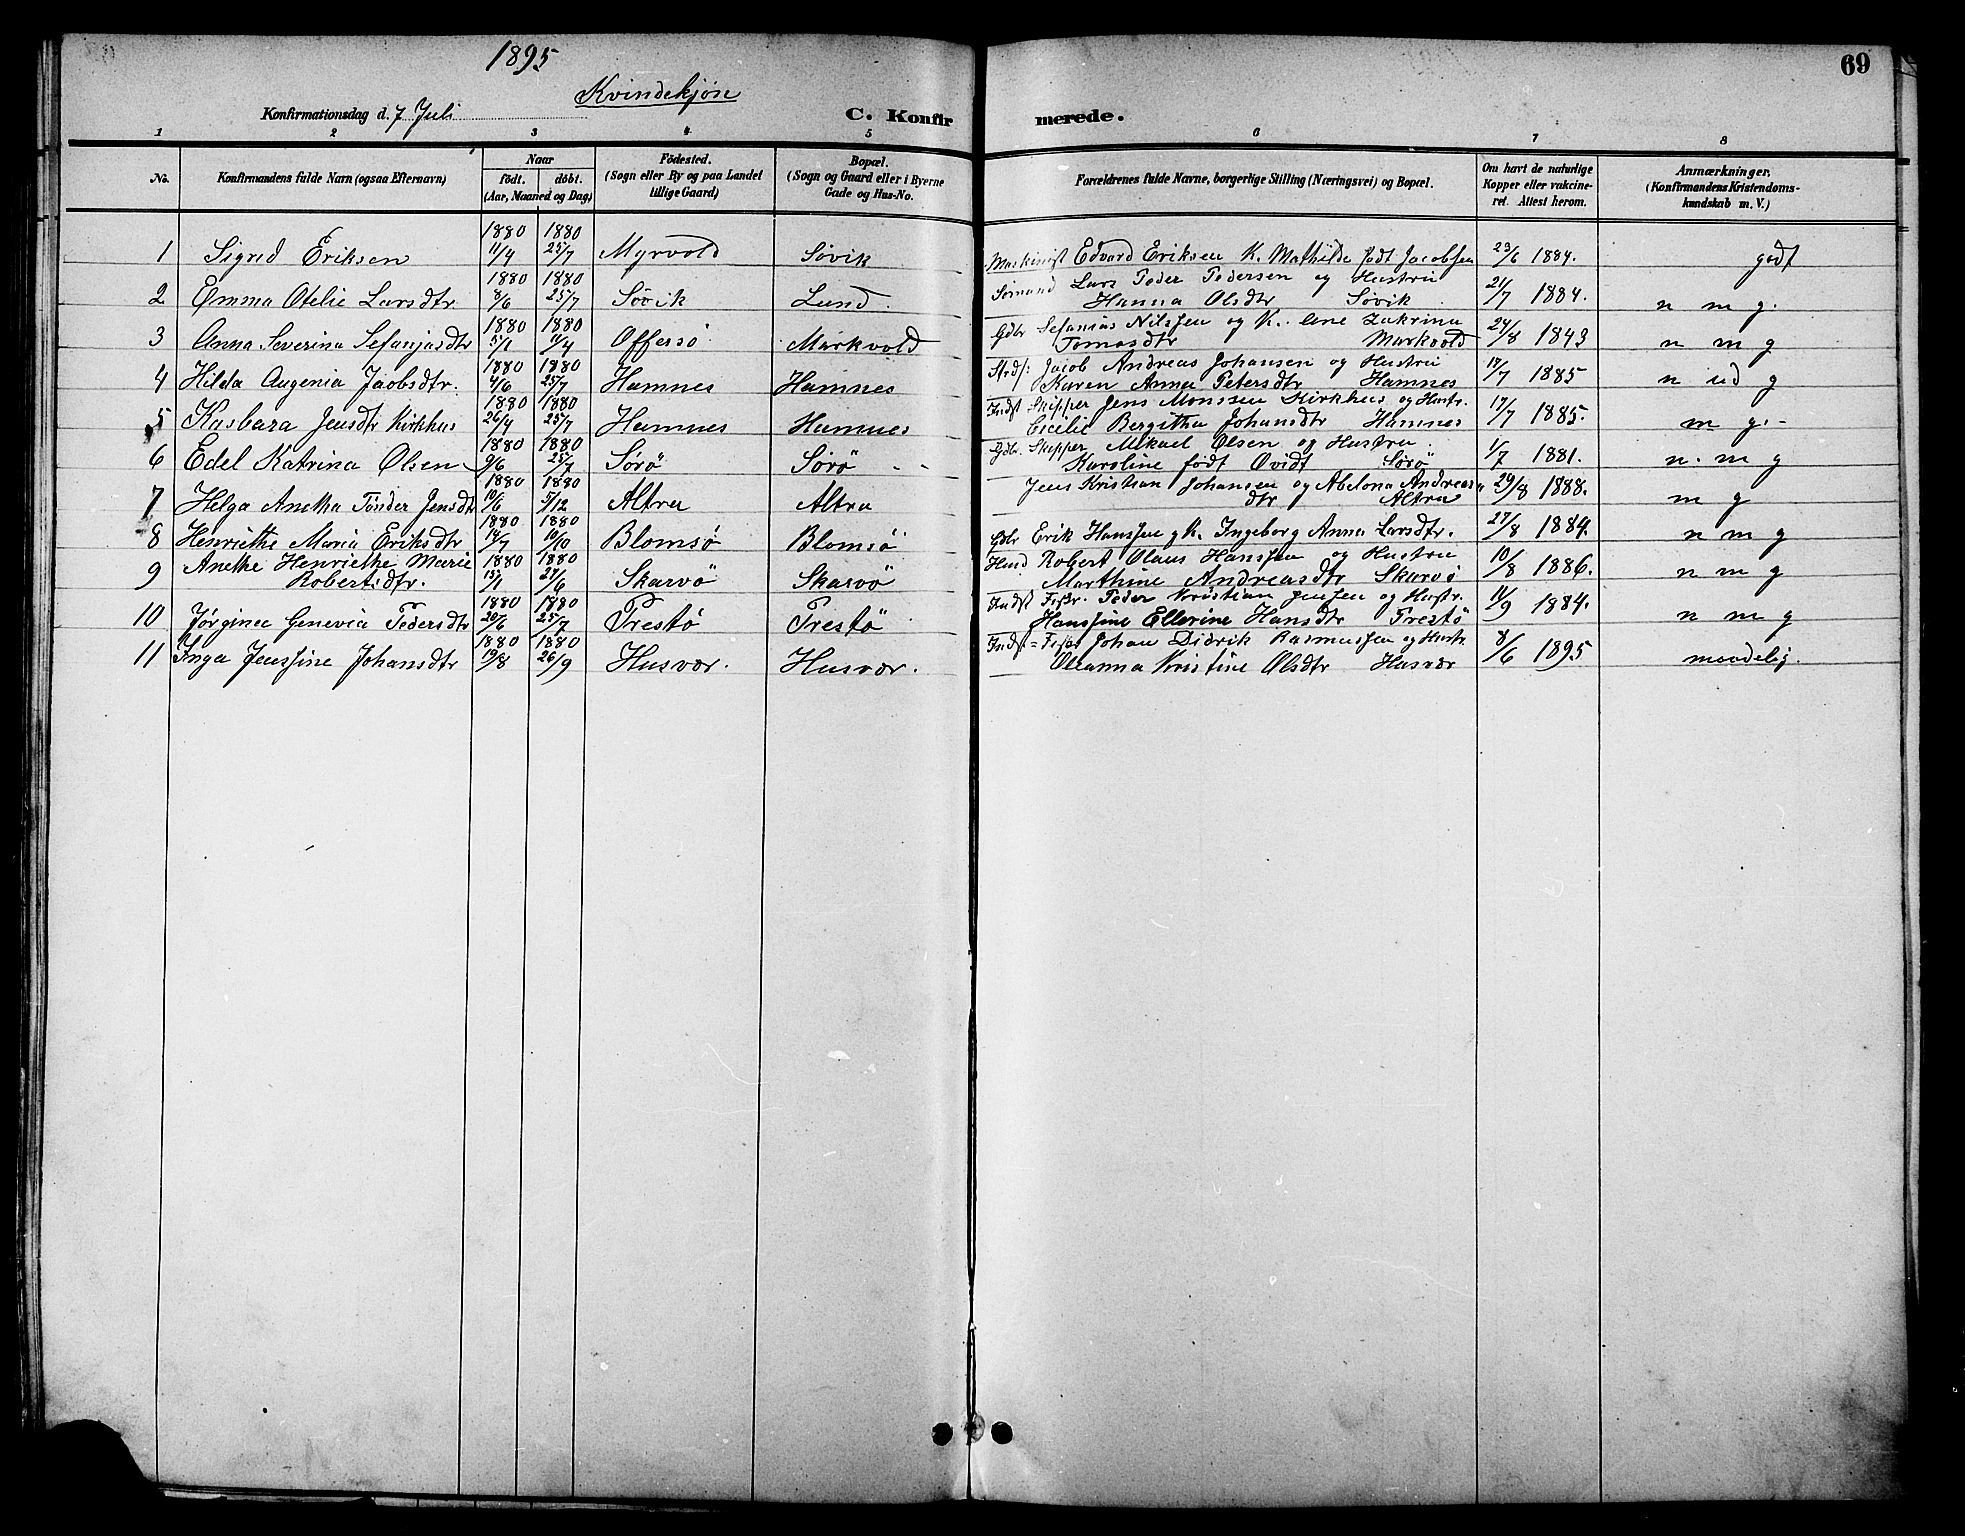 1895
Kvindekjøn
69
Konfirmationsdag d. 7 Juli
C. Konfirmerede.
1 2 3 4 5 6 7 8
No.
Konfirmandens fulde Navn (ogsaa Efternavn)
Naar
født. døbt.
(Aar, Maaned og Dag)
Födested.
(Sogn eller By og paa Landet
tillige Gaard)
Bopæl.
(Sogn og Gaard eller i Byerne
Gade og Hus-No.
Forældrenes fulde Navne, borgerlige Stilling (Næringsvei) og Bopæl.
Om havt de naturlige
Kopper eller vakcine-
ret. Attest herom.
Anmærkninger.
(Konfirmandens Kristendoms-
kundskab m. V.)
1880 1880
1 Sigrid Eriksen 11/4 25/7 Myrvold Søvik Maskinist Edvard Eriksen K. Mathilde født Jacobsen 23/6 1884. godt
1880 1880 Sømand Lars Peder Pedersen og Hustru
2 Emma Otelie Larsdtr. 8/6 25/7 Søvik Lund. Hanna Olsdtr Søvik 21/7 1884. n m g.
1880 1880 Gdbr Sefanias Nilssen og K. Ane Zakrina
3 Anna Severina Sefanjasdtr 5/1 11/4 Offersö Markvold Tomasdtr Markvold 24/8 1843 n m g
1880 1880 Jacob Andreas Johansen og Hustru
4 Hilda Augenia Jacobsdtr. 4/6 25/7 Hamnes Hamnes Karen Anna Petersdtr Hamnes 17/7 1885 n ud g
1880 1880 Indst Skipper Jens Monssen Kirkhus og Hustr.
5 Kasbara Jensdtr Kirkhus 26/4 25/7 Hamnes Hamnes Cecilie Bergitha Johansdtr Hamnes 17/7 1885. m g.-
1880 1880 Gdbr. Skipper Mikael Olsen og Hustru
6 Edel Katrina Olsen 9/6 25/7 Sørö Sørö Karoline født Qvidt Sørö 1/7 1881. n. m g
1880 1880 Jens Kristian Johansen og Abelona Andreas
7 Helga Anetha Tönder Jensdtr 10/6 5/12 Altra Altra dtr Altra 29/8 1888. m g
1880 1880
8 Henriethe Maria Eriksdtr 14/7 10/10 Blomsö Blomsö Gdbr Erik Hanssen g K. Ingeborg Anna Larsdtr. 27/8 1884. n m g
Anethe Henriethe Marie 1880 1880 Husd Robert Olaus Hanssen og Hustru
9 Robertsdtr. 15/1 27/6 Skarvö Skarvö Marthine Andreasdtr Skarvö 10/8 1886. n m g
1880 1880 Indst Fisker. Peder Kristian Jensen og Hustr.
10 Jørginea Genevia Pedersdtr 20/6 25/7 Prestö Prestö Hanssine Ellerine Hansdtr Prestö 11/9 1884. n m g
1880 1880 Indst = Fisker Johan Didrik Rasmussen og Hustr.
11 Inga Jenssine Johansdtr 19/8 26/9 Husvær. Husvær. Oleanna Kristine Olsdtr Husvær 8/6 1895 maadelig.